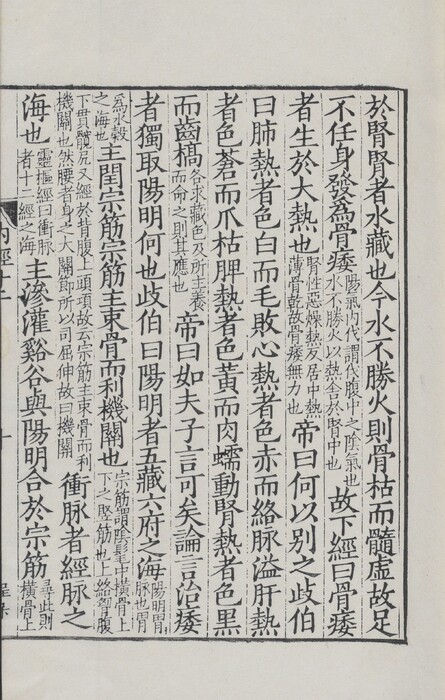 於腎腎者水藏也今水不勝火則骨枯而髓虛故足
不任身發為骨痿陽氣內伐謂伐腹中之陰氣也水不勝火以熱舍於腎中也故下經曰骨痿
者生於大熱也腎性惡燥熱反居中熱薄骨乾故骨痿無力也帝曰何以別之歧伯
曰肺熱者色白而毛敗心熱者色赤而絡脉溢肝熱
者色蒼而爪枯脾熱者色黃而肉蠕動腎熱者色黑
而齒槁各求藏色及所主養而命之則其應也帝曰如夫子言可矣論言治痿
者獨取陽明何也歧伯曰陽明者五藏六府之海陽明胃脉也胃
為水穀之海也主閏宗筋宗筋主束骨而利機關也宗筋謂陰髦中橫骨上下之竪筋也上絡胷腹
下貫髖尻又經於背腹上頭項故云宗筋主束骨而利機關也然腰者身之大關節所以司屈伸故曰機關衝脉者經脉之
海也靈樞經曰衝脉者十二經之海主滲灌谿谷與陽明合於宗筋尋此則橫骨上